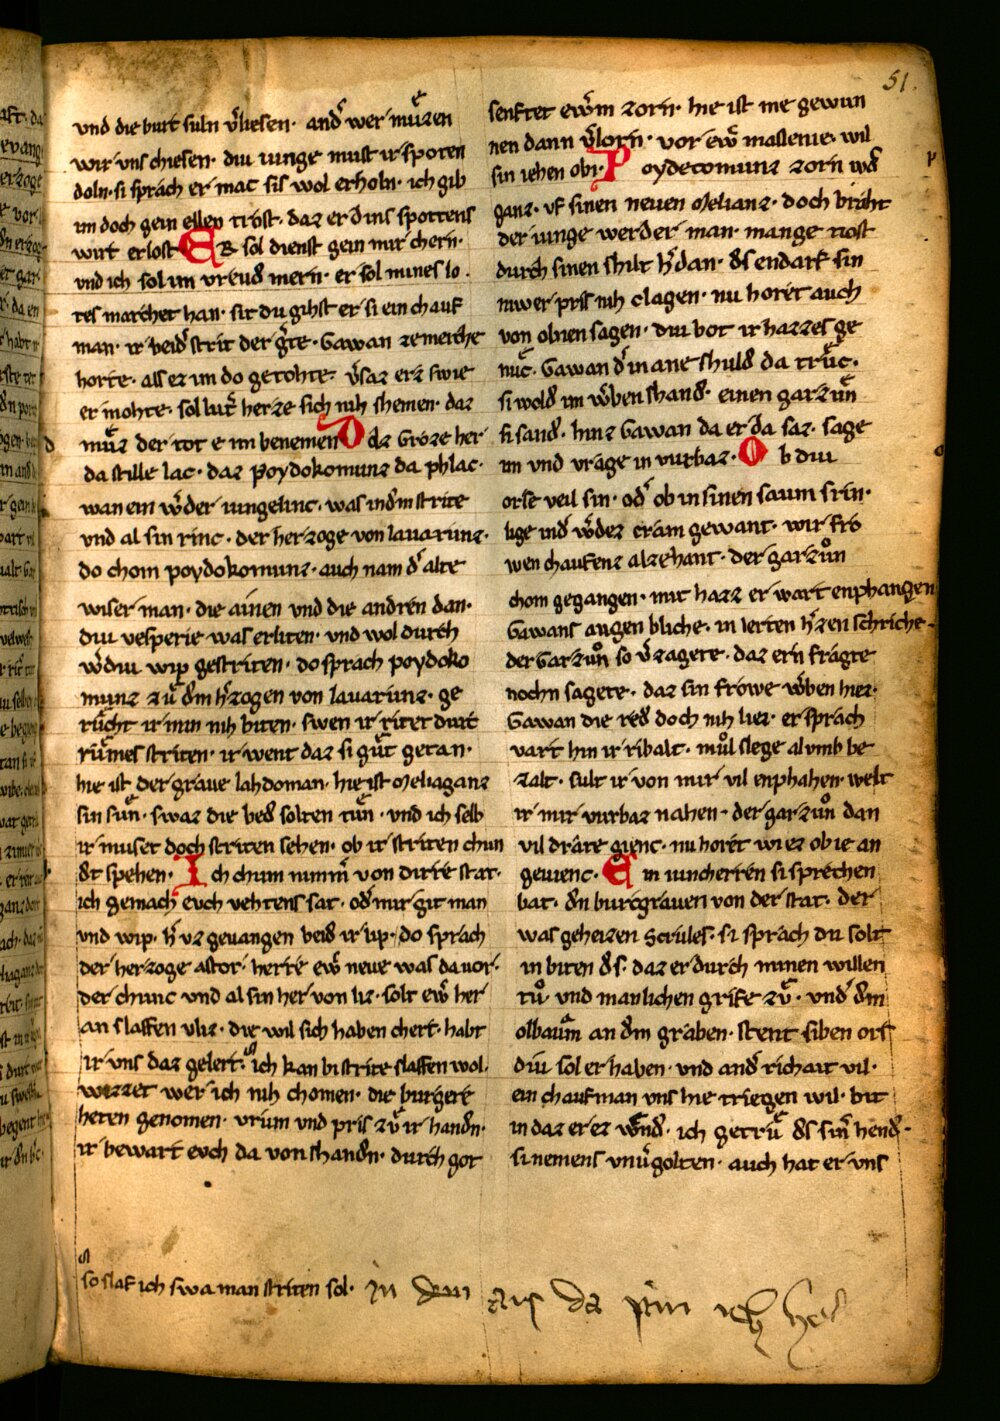 51.
vnd die burt suln v̄liesen· and̄ wer mūzen
wir vns chiesen· diu iunge must ir sporen
doln· si sprach er mac sis wol erholn· ich gib
im doch gein ellen trost· daz er dins spottens
wirt erlost ER sol dienst gein mir chern·
vnd ich sol im vreud̄ mern· er sol mines lo·
tes marchet han· sit du gihst er si ein chauf
man· ir beid̄ strit der ḡte· Gawan ze merche
horte· als ez im do getohte· v̄saz erz swie
er mohte· sol lut̄ herze sich nih shemen· daz
mūz der tot e im benemen Daz Groze her
da stille lac· daz poydokomunz da phlac·
wan ein w̄der iungelinc· was ind̄m strite
vnd al sin rinc· der herzoge von lauarunz·
do chom poydokomunz· auch nam d̄ alte
wiser man· die ainen vnd die andren dan·
diu vesperie was erliten· vnd wol durch
w̄diu wip gestriten· do sprach poydoko
munz zū d̄m h̄zogen von lauarunz· ge
rūcht ir min nih biten· swen ir ritet durt
rūmes striten· ir went daz si gūt getan·
hie ist der graue lahdoman· hie ist Meliaganz
sin sun· swaz die bed̄ solten tūn· vnd ich selb
ir muset doch striten sehen· ob ir striten chun
d̄t spehen· Ich chum nimm̄ von dirre stat·
ich gemach euch vehtens sat· od̄ mir git man
vnd wip· h̄ vz geuangen beid̄ ir lip· do sprach
der herzoge astor· herre ew̄ neue was da vor·
der chunc vnd al sin her von liz· solt ew̄ her
an slaffen vliz· die wil sich haben chert· habt
ir vns daz gelert· ich kan bi strite slaffen wol·
wizzet wer ich nih chomen· die burgere
heten genomen· vrum vnd pris zū ir hand̄n·
ir bewart euch da von shand̄n· durch got
so slaf ich swa man striten sol·
senftet ew̄m zorn· hie ist me gewun
nen dann v̄lorn· vor ew̄ massenie· wil
sin iehen obr· Poydecomunz zorn wd̄
ganz· vf sinen neuen Melianz· doch braht
der iunge werder man· mange tiost
durch sinen shilt h̄ dan· d̄s endarf sin
niwer pris nih clagen· nu horet auch
von obien sagen· diu bot ir hazzes ge
nūc· Gawan d̄ in ane shuld̄ da trūc·
si wold̄ im w̄ben shand̄· einen garzūn
si sand̄· hinz Gawan da er da saz· sage
im vnd vrage in vurbaz· Ob diu
orse veil sin· od̄ ob in sinen saum srin·
lige ind̄ w̄dez cram gewant· wir frō
wen chaufenz alzehant· der garzůn
chom gegangen· mit hazz er wart enphangen
Gawans augen bliche· in lerten h̄zen schriche·
der Garzůn so v̄zagete· daz ern fragte
nochn sagete· daz sin frowe w̄ben hiez·
Gawan die red̄ doch nih liez· er sprach
vart hin ir ribalt· můl slege al vmb be
zalt· sult ir von mir vil enphahen· welt
ir mir vurbaz nahen· der garzůn dan
vil drate gienc· nu horet wi ez obie an
geuienc· Ein iuncherren si sprechen
bat· d̄n burcgrauen von der stat· der
was geheizen Scrules· si sprach du solt
in biten d̄s· daz er durch minen willen
tů· vnd manlichen grife zū· vnd̄ d̄m
olbaum an d̄m graben· stent siben ors
diu sol er haben· vnd and̄ richait vil·
ein chaufman vns hie triegen wil· bit
in daz er ez wend̄· ich getrū d̄s sin̄ hend̄·
si nemens vnv̄golten· auch hat er vns
in dem da ich